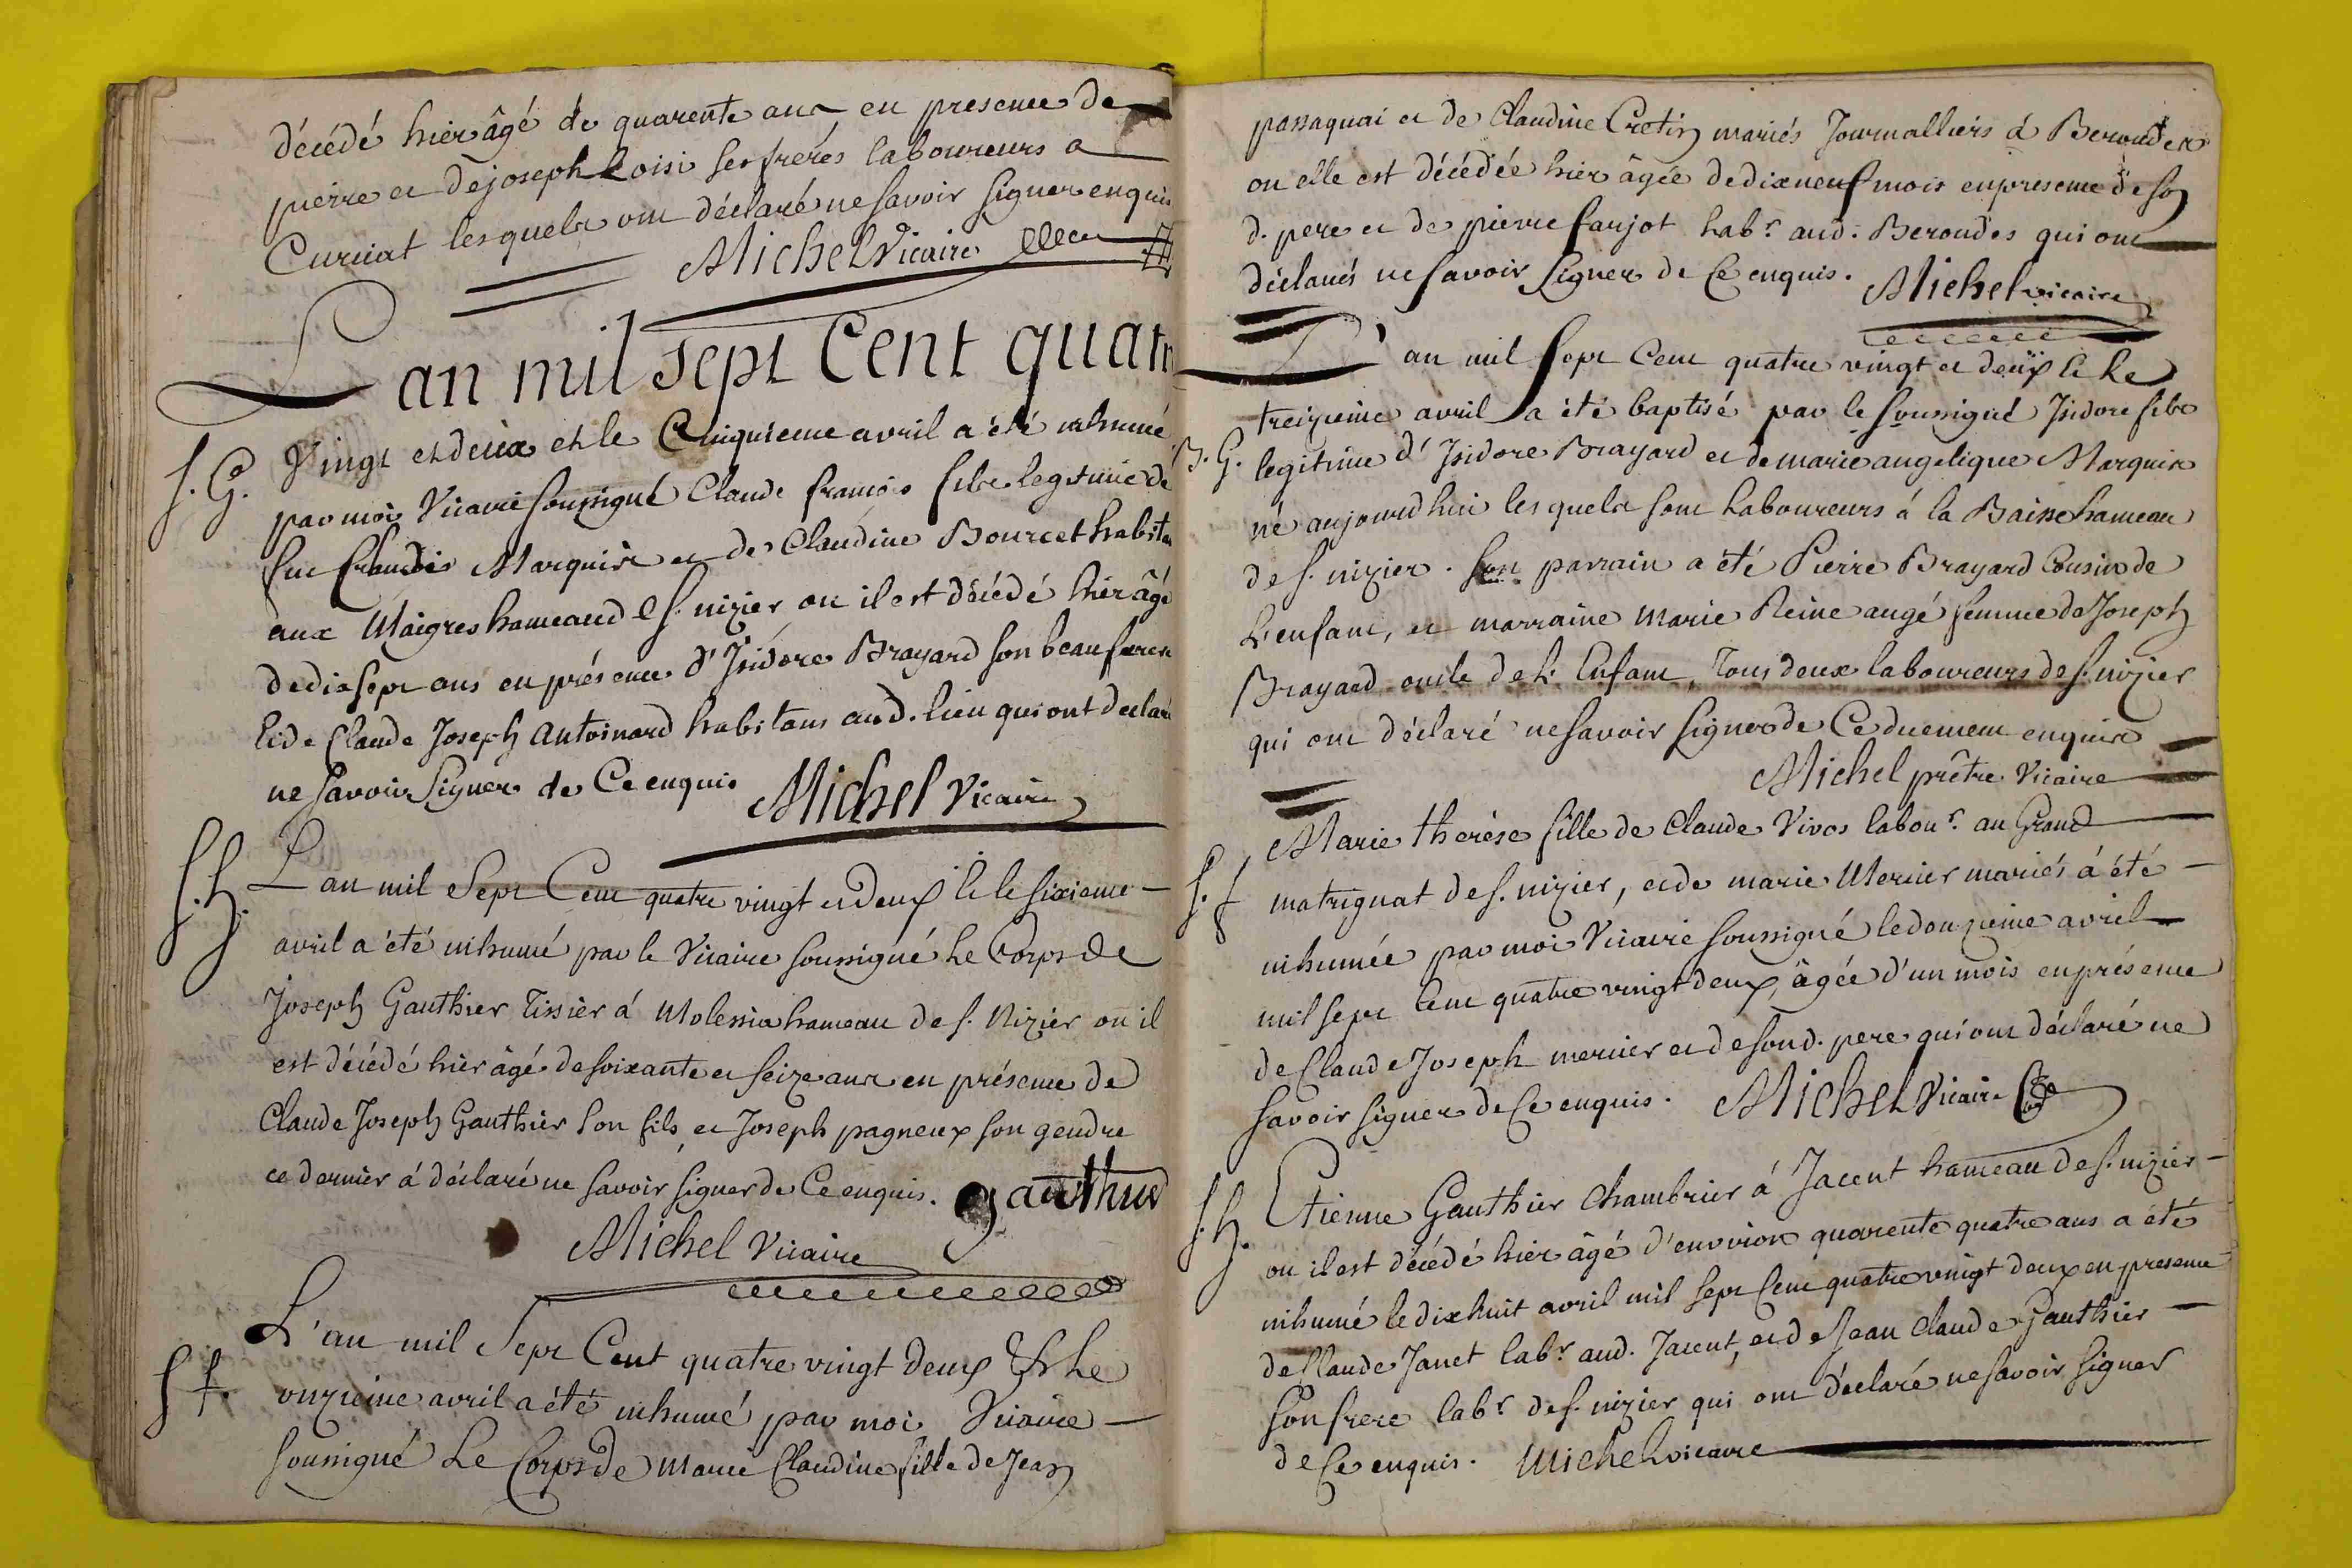 décédé hier âgé de quarente ans en presence de
pierre et de joseph Loisi ses freres laboureurs a
Curciat lesquels ont déclaré ne savoir signer enquis
Michel Vicaire
L'an mil sept Cent quatr
S. G. Vingt et deux et le Cinquieme avril a été inhumé
par moi Vicaire soussigné Claude françois fils legitime de
feu Marquis et de Claudine Bourcet habita
aux Maigres hameau de S. nizier ou il est décédé hier âgé
de dix sept ans en présence d'Isidore Brayard son beaufrere
et de Claude Joseph Antoinard habitans aud. lieu qui ont declaré
ne savoir signer de Ce enquis Michel Vicaire
S. h. L'an mil Sept Cent quatre vingt et deux et le sixieme
avril a été inhumé par le Vicaire soussigné Le Corps de
Joseph Gauthier Tissier á Molessia hameau de S. Nizier ou il
est décédé hier âgé de soixante et seize ans en présence de
Claude Joseph Gauthier son fils, et Joseph pagneux son gendre
ce dernier á déclaré ne savoir signer de Ce enquis. gauthier
Michel Vicaire
L'an mil Sept Cent quatre vingt deux Et Le
S. f. onzieme avril a été inhumé par moi Vicaire
soussigné Le Corps de Marie Claudine fille de Jean
passaquai et de Claudine Cretin mariés Journalliers á Beroudes
ou elle est décédée hier âgée de dixneuf mois en presence de son
d. pere et de pierre farjot habr. aud. Beroudes qui ont
déclarés ne savoir signer de Ce enquis. Michel vicaire
L'an mil sept Cent quatre vingt et deux et Le
treizieme avril a été baptisé par le soussigné Isidore fils
B. G. legitime d'Isidore Brayard et de marie angelique Marquis
né aujourdhui lesquels sont Laboureurs á la Baisse hameau
de S. nizier. Son parrain a été Pierre Brayard Cousin de
L'enfant, et marraine Marie Reine augé femme de Joseph
Brayard oncle de L'Enfant, Tous deux laboureurs de S. nizier
qui ont déclaré ne savoir signer de Ce duement enquis
Michel prêtre Vicaire
Marie therèse fille de Claude Vivos labour. au Grand
S. f matrignat de S. nizier, et de marie Mercier mariés á été
inhumée par moi Vicaire soussigné le douzieme avril
mil sept Cent quatre vingt deux, âgée d'un mois en présence
de Claude Joseph mercier et de sond. pere qui ont déclaré ne
savoir signer de Ce enquis. Michel Vicaire
S. h. Etienne Gauthier Chambrier á Jacent hameau de S. nizier
ou il est décédé hier âgé d'environ quarente quatre ans a été
inhumé le dix huit avril mil sept Cent quatre vingt deux en presence
de Claude Janet labr. aud. Jacent, et de Jean Claude Gauthier
son frere labr. de S. nizier qui ont déclaré ne savoir signer
de Ce enquis. Michel vicaire